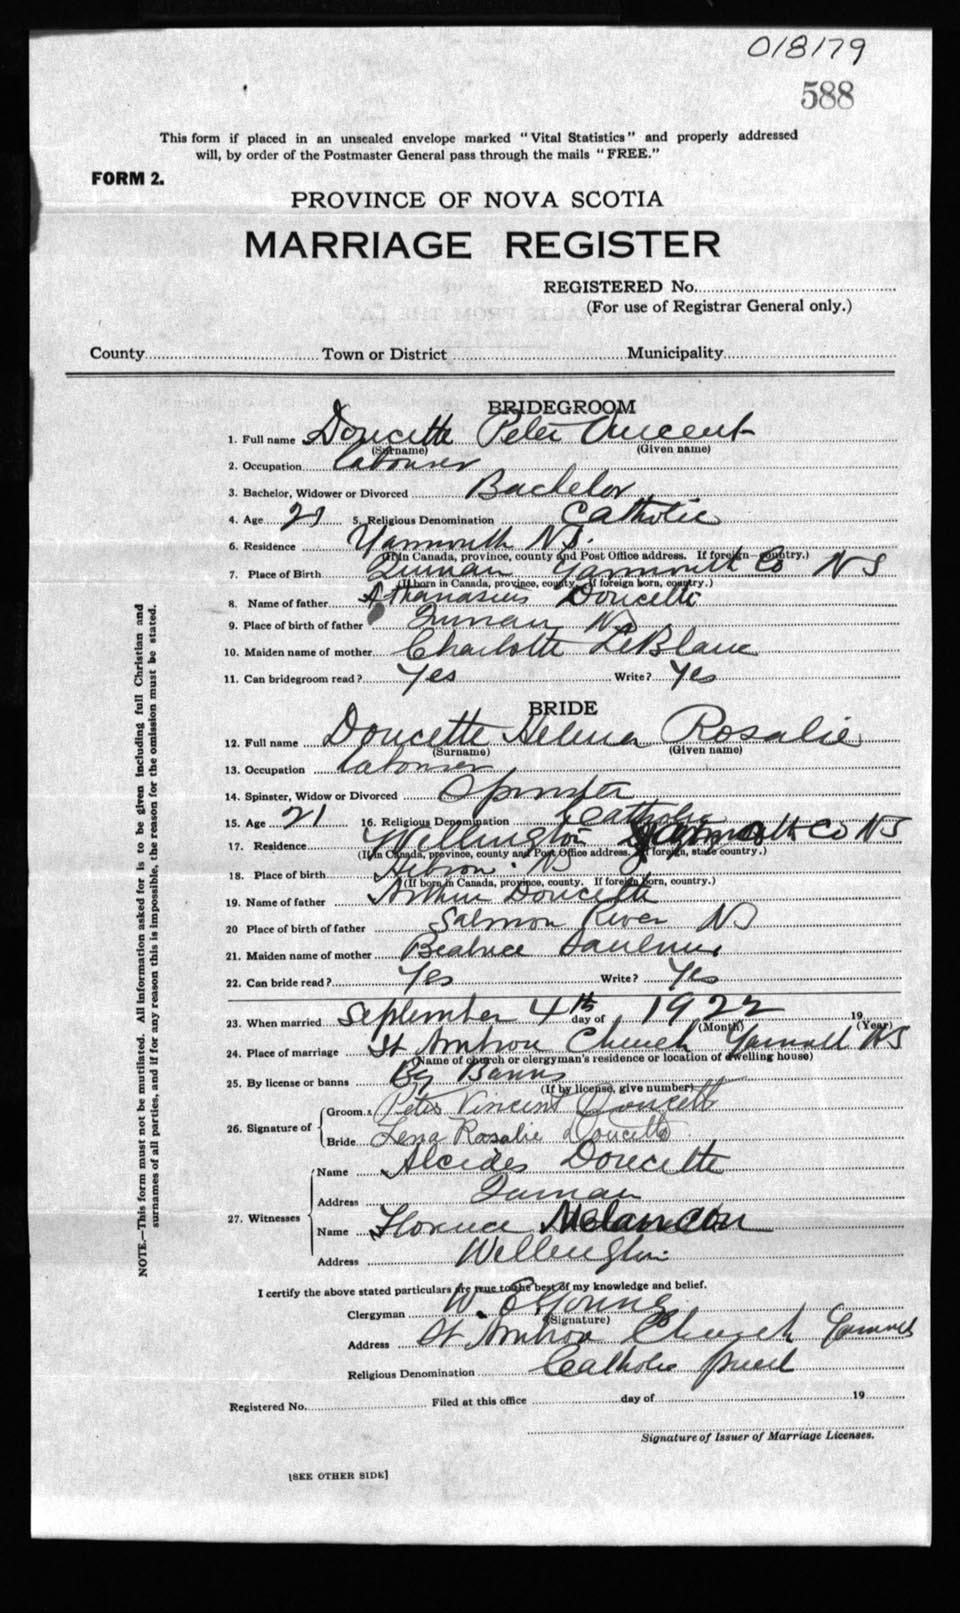 018179
588
This form if placed in an unsealed envelope marked "Vital Statistics" and properly addressed
will, by order of the Postmaster General pass through the mails "FREE."
FORM 2.
PROVINCE OF NOVA SCOTIA
MARRIAGE REGISTER
REGISTERED No.
(For use of Registrar General only.)
County Town or District Municipality
BRIDEGROOM
1. Full name Doucette Peter Vincent
(Surname) (Given name)
2. Occupation labourer
3. Bachelor, Widower or Divorced Bachelor
4. Age 21 5. Religious Denomination Catholic
6. Residence Yarmouth NS.
(If in Canada, province, county and Post Office address. If foreign—country.)
7. Place of Birth Quinan Yarmouth Co NS
(If born in Canada, province, county. If foreign born, country.)
8. Name of father Athanasius Doucette
9. Place of birth of father Quinan NS
10. Maiden name of mother Charlotte LeBlanc
11. Can bridegroom read? Yes Write? Yes
BRIDE
12. Full name Doucette Helena Rosalie
(Surname) (Given name)
13. Occupation labourer
14. Spinster, Widow or Divorced Spinster
15. Age 21 16. Religious Denomination Catholic
17. Residence Wellington Yarmouth Co NS
(If in Canada, province, county and Post Office address. If foreign, state country.)
18. Place of birth Hebron. NS
(If born in Canada, province, county. If foreign born, country.)
19. Name of father Arthur Doucette
20 Place of birth of father Salmon River NS
21. Maiden name of mother Beatrice Saulnier
22. Can bride read? Yes Write? Yes
23. When married September 4th day of 1922 19
(Month) (Year)
24. Place of marriage St Ambrose Church Yarmouth NS
(Name of church or clergyman's residence or location of dwelling house)
25. By license or banns By Banns
(If by license, give number)
26. Signature of Groom Peter Vincent Doucett
Bride Lena Rosalie Doucette
27. Witnesses Name Alcides Doucette
Address Quinan
Name Florence Melancon
Address Wellington
I certify the above stated particulars are true to the best of my knowledge and belief.
Clergyman W. E. Young
(Signature)
Address St Ambrose Church Yarmouth
Religious Denomination Catholic priest
Registered No. Filed at this office day of 19
Signature of Issuer of Marriage Licenses.
[SEE OTHER SIDE]
NOTE.—This form must not be mutilated. All information asked for is to be given including full Christian and
surnames of all parties, and if for any reason this is impossible, the reason for the omission must be stated.